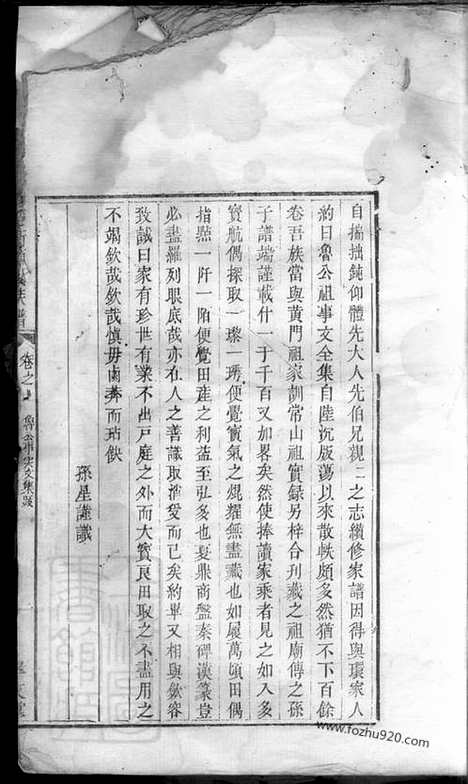 自揣拙鈍仰體先大人先伯兄觀二之志續修家譜因得與環家人
約曰魯公祖事文全集自陸沉版蕩以來散軼頗多然猶不下百餘
卷吾族當與黃門祖家訓常山祖實録另梓合刊藏之祖廟傳之孫
子譜端謹載什一于千百又加畧矣然使捧讀家乘者見之如入多
寶航偶探取一瓈一琇便覺寶氣之焜耀無盡藏也如履萬頃田偶
指㸃一阡一陌便覺田疆之利益至弘多也夏鼎商盤秦碑漢篆豈
必盡羅列眼底哉亦在人之善識取確愛而已矣約畢又相與斂容
致誠曰家有珍世有業不出戸庭之外而大寶良田取之不盡用之
不竭欽哉欽哉慎毋鹵莽而玷缺
孫星謹識
族譜
卷之
魯公事文集題
www.fozhu920.com